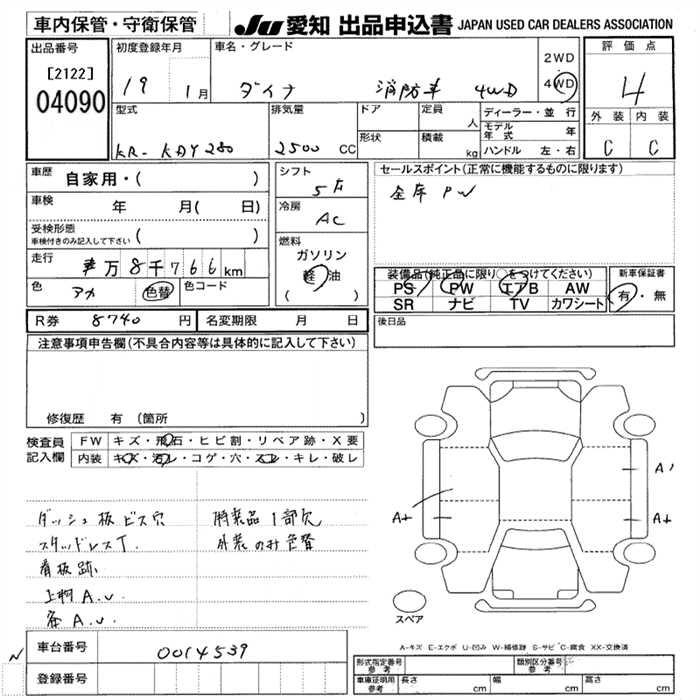 車内保管・守衛保管
JU 愛知 出品申込書 JAPAN USED CAR DEALERS ASSOCIATION
出品番号
[2122]
04090
初度登録年月
19 1月
車名・グレード
ダイナ 消防車 4WD
2WD
4WD
評価点
4
外装 内装
C C
型式
KR-KDY280
排気量
2500 CC
ドア
形状
定員 人
積載 kg
ディーラー・並行
モデル年式 年
ハンドル 左・右
車歴 自家用・( )
車検 年 月(日 )
受検形態
車検付きのみ記入して下さい ( )
走行 万8千766km
色 アカ 色替 色コード
シフト
5F
冷房
AC
燃料
ガソリン
軽油
( )
セールスポイント(正常に機能するものに限ります)
PW
装備品(純正品に限り○をつけてください)
PS PW エアB AW
SR ナビ TV カワシート
新車保証書
有・無
R券 8740 円 名変期限 月 日
後日品
注意事項申告欄(不具合内容等は具体的に記入して下さい)
修復歴 有 (箇所 )
検査員
記入欄
FW キズ・飛石・ヒビ割・リペア跡・X要
内装 キズ・汚レ・コゲ・穴・スレ・キレ・破レ
ダッシュ板ビス穴
スタッドレスT.
看板跡
A.U.
A.U.
備装品1部欠
外装のみ色替
A+
A'
A+
スペア
A-キズ E-エクボ U-凹み W-補修跡 S-サビ C-腐食 XX-交換済
N
車台番号 0014539
登録番号
形式指定番号
参考
類別区分番号
参考
車庫証明用
参考
長さ cm 幅 cm 高さ cm